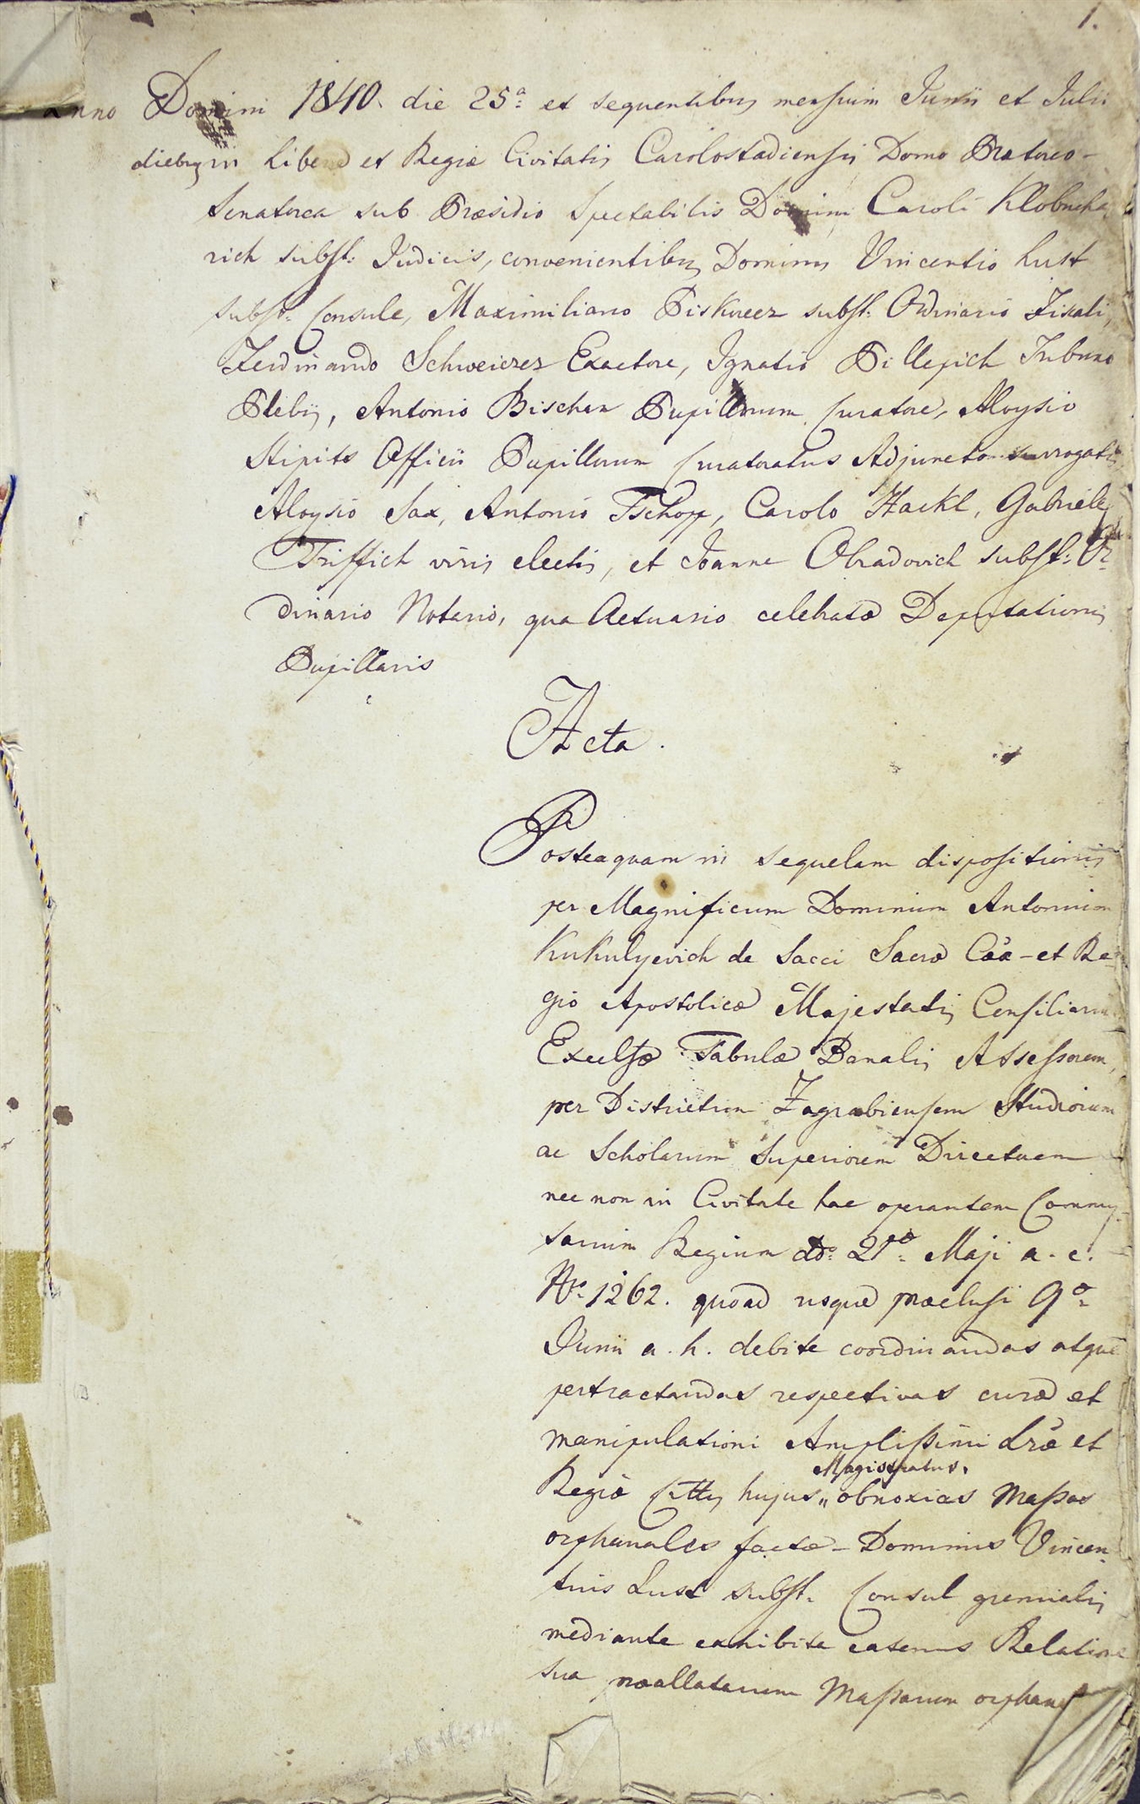 1.
anno Domini 1840. die 25a et sequentibus mensium Junii et Julii
diebus in Liberæ et Regiæ Civitatis Carolostadiensis Domo Prætoreo-
Senatorea sub Præsidio Spectabilis Domini Caroli Klobucha
rich subst. Judicis, convenientibus Dominis Vincentio Lust
subst. Consule, Maximiliano Piskurez subst. Ordinario Fiscali,
Ferdinando Schweizer Exactore, Ignatio Pillepich Tribuno
Plebis, Antonio Bischan Pupillorum Curatore, Aloysio
Stipits Officii Pupillorum Curatoratus Adjuncto surrogato
Aloysio Sax, Antonio Tschopp, Carolo Hackl, Gabriele
Triffich viris electis, et Joanne Obradovich subst. Or
dinario Notario, qua Actuario celebratæ Deputationis
Pupillaris
Acta.
Posteaquam in sequelam dispositionis
per Magnificum Dominum Antonium
Kukulyevich de Sacci Sacræ Cæa - et Re-
giæ Apostolicæ Majestatis Consiliarium
Excelsæ Tabulæ Banalis Assessorem,
per Districtum Zagrabiensem Studiorum
ac Scholarum Superiorem Directorem
nec non in Civitate hac operantem Commis-
sarium Regium ddo 21a Maji a. c.
Nro 1262. quoad usque præclusi 9a
Junii a. h. debite coordinandas atque
pertractandas respectivas curæ et
manipulationi Amplissimi Lræ et
Regiæ Cittis hujus " Magistratus. obnoxias Massas
orphanales factæ - Dominus Vincen-
tius Lust subst. Consul gremialis
mediante exhibita eatenus Relatione
sua præallatarum Massarum orphan